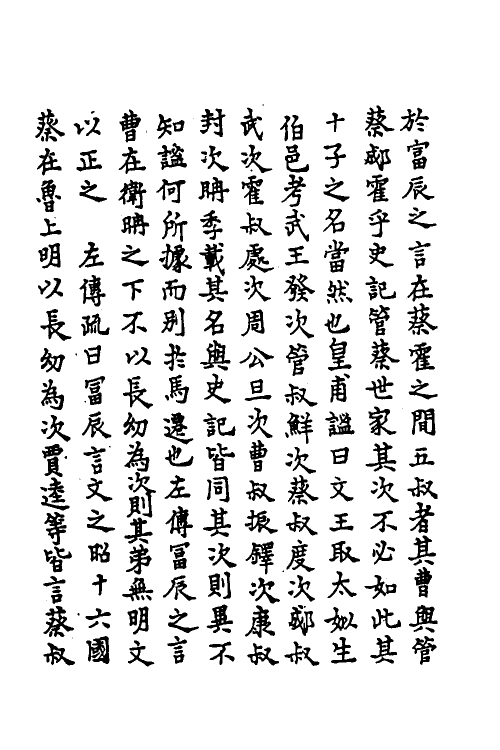 於富辰之言在蔡霍之間五叔者其曹與管
蔡郕霍乎史記管蔡世家其次不必如此其
十子之名當然也皇甫謐曰文王取太姒生
伯邑考武王發次管叔鮮次蔡叔度次郕叔
武次霍叔處次周公旦次曹叔振鐸次康叔
封次聃季載其名與史記皆同其次則異不
知謐何所據而別於馬遷也左傳冨辰之言
曹在衛聃之下不以長幼為次則其弟無明文
以正之　左傳疏曰冨辰言文之昭十六國
蔡在魯上明以長幼為次賈逵等皆言蔡叔